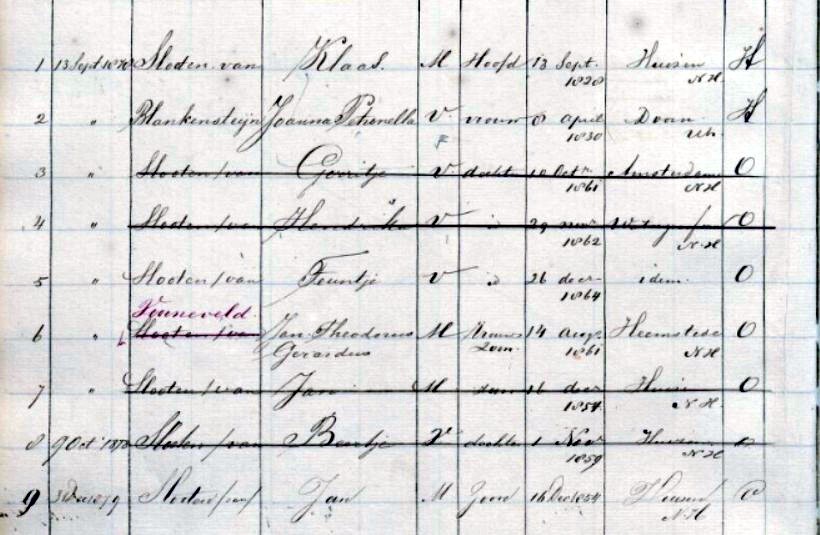 1 13 Sept 1878 Slooten van Klaas. M Hoofd 13 Sept. 1828 Huizen N.H. H
2 " Blankensteijn Joanna Petronella V vrouw 8 april 1830 Doorn Ut. H
3 " Slooten / van Gerritje V docht 10 Octr 1861 Amsterdam N.H. O
4 " Slooten / van Hendrika V id 29 1862 O
N.H.
5 " Slooten / van Teuntje V id 26 decr 1864 idem O
Vinneveld
6 " Slooten / van Jan Theodorus M Vrouws 14 Aug. Heemstede O
Gerardus Zoon. 1861 N.H.
7 " Slooten / van Jan M zoon 16 dec 1854 Huizen N.H. O
8 9 Oct 1878 Slooten / van Bertje V dochter 1 Nov 1859 Huizen N.H. O
9 31 Dec 1879 Slooten / van / Jan M Zoon 16 Dec 1854 Huizen N.H.